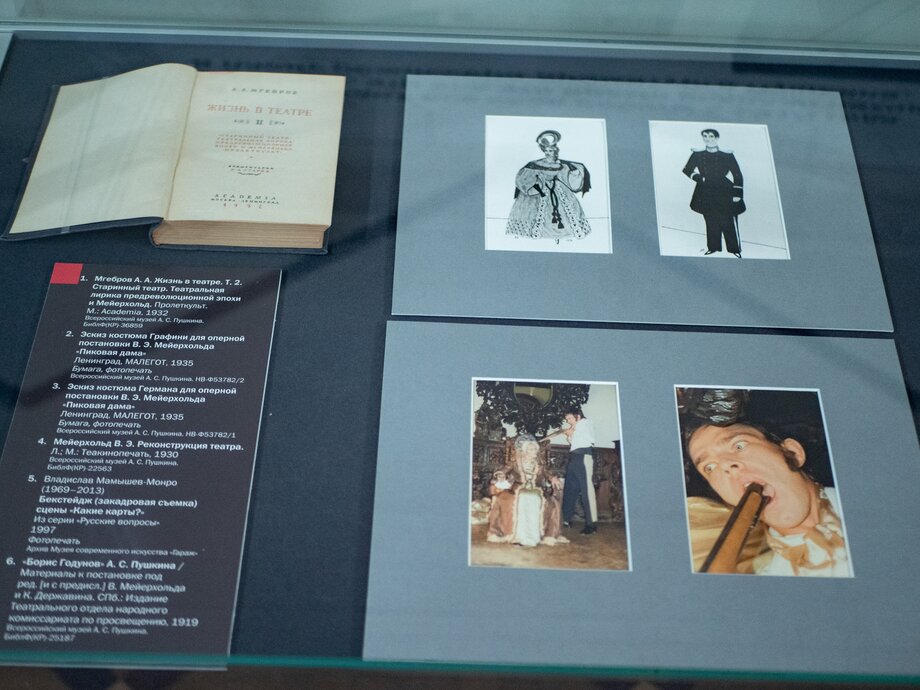 А. А. МГЕБРОВ
ЖИЗНЬ В ТЕАТРЕ
II
СТАРИННЫЙ ТЕАТР
ТЕАТРАЛЬНАЯ ЛИРИКА
ПРЕДРЕВОЛЮЦИОННОЙ
ЭПОХИ И МЕЙЕРХОЛЬД
ПРОЛЕТКУЛЬТ
ACADEMIA
МОСКВА ЛЕНИНГРАД
1932
1. Мгебров А. А. Жизнь в театре. Т. 2.
Старинный театр. Театральная
лирика предреволюционной эпохи
и Мейерхольд. Пролеткульт.
М.: Academia, 1932
Всероссийский музей А. С. Пушкина.
БиблФ(КР)-36859
2. Эскиз костюма Графини для оперной
постановки В. Э. Мейерхольда
«Пиковая дама»
Ленинград, МАЛЕГОТ, 1935
Бумага, фотопечать
Всероссийский музей А. С. Пушкина. НВ-Ф53782/2
3. Эскиз костюма Германа для оперной
постановки В. Э. Мейерхольда
«Пиковая дама»
Ленинград, МАЛЕГОТ, 1935
Бумага, фотопечать
Всероссийский музей А. С. Пушкина. НВ-Ф53782/1
4. Мейерхольд В. Э. Реконструкция театра.
Л.; М.: Теакинопечать, 1930
Всероссийский музей А. С. Пушкина.
БиблФ(КР)-22563
5. Владислав Мамышев-Монро
(1969–2013)
Бекстейдж (закадровая съемка)
сцены «Какие карты?»
Из серии «Русские вопросы»
1997
Фотопечать
Архив Музея современного искусства «Гараж»
6. «Борис Годунов» А. С. Пушкина /
Материалы к постановке под
ред. [и с предисл.] В. Мейерхольда
и К. Державина. СПб.: Издание
Театрального отдела народного
комиссариата по просвещению, 1919
Всероссийский музей А. С. Пушкина.
БиблФ(КР)-25187